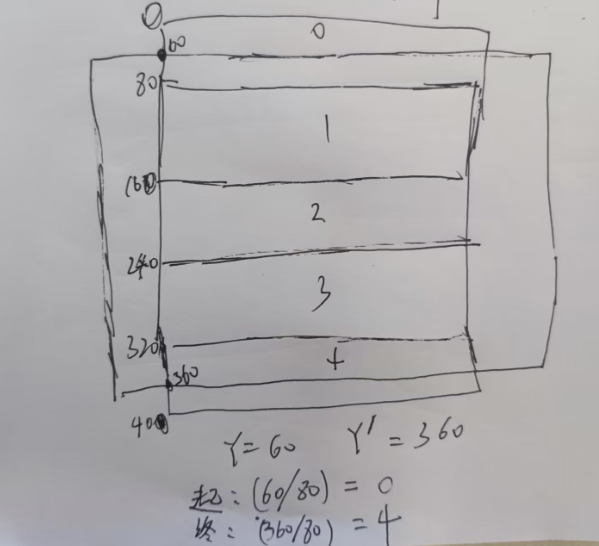 0
0
60
80
1
160
2
240
3
320
4
360
400
Y=60 Y'=360
起:(60/80)=0
终:(360/80)=4